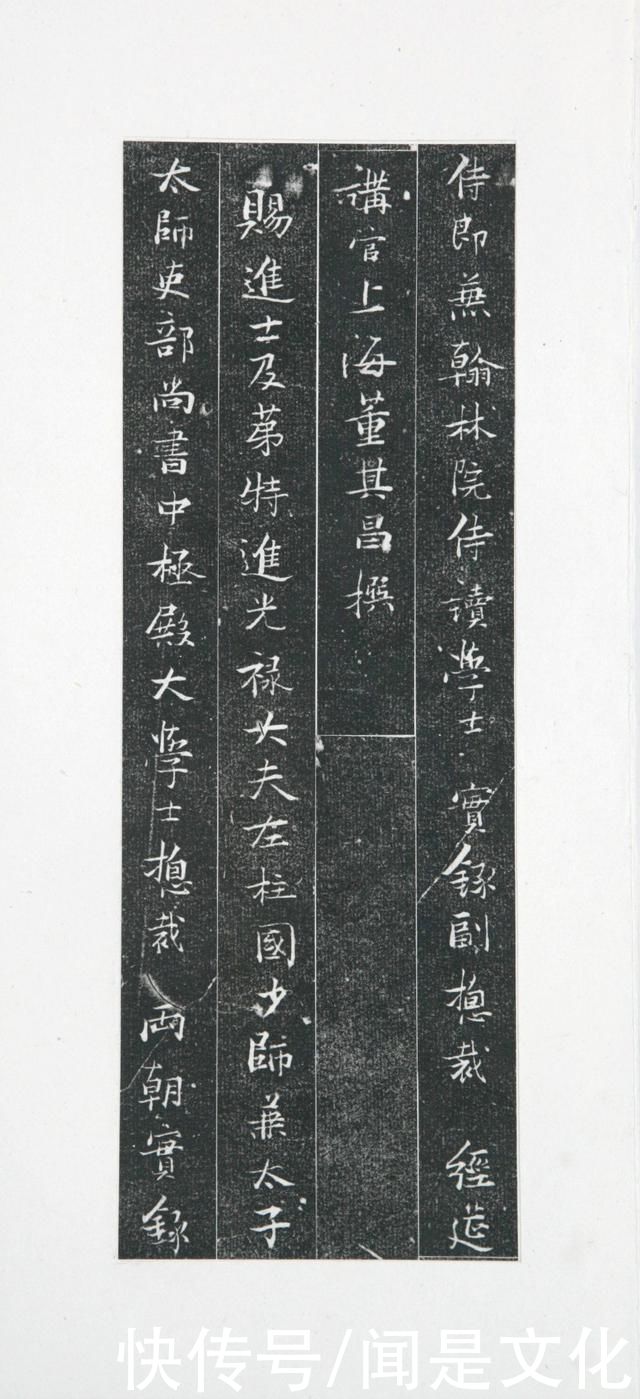 侍郎兼翰林院侍讀學士實錄副摠裁經筵
講官上海董其昌撰
賜進士及第特進光祿大夫左柱國少師兼太子
太師吏部尚書中極殿大學士摠裁兩朝實錄
快传号/闻是文化